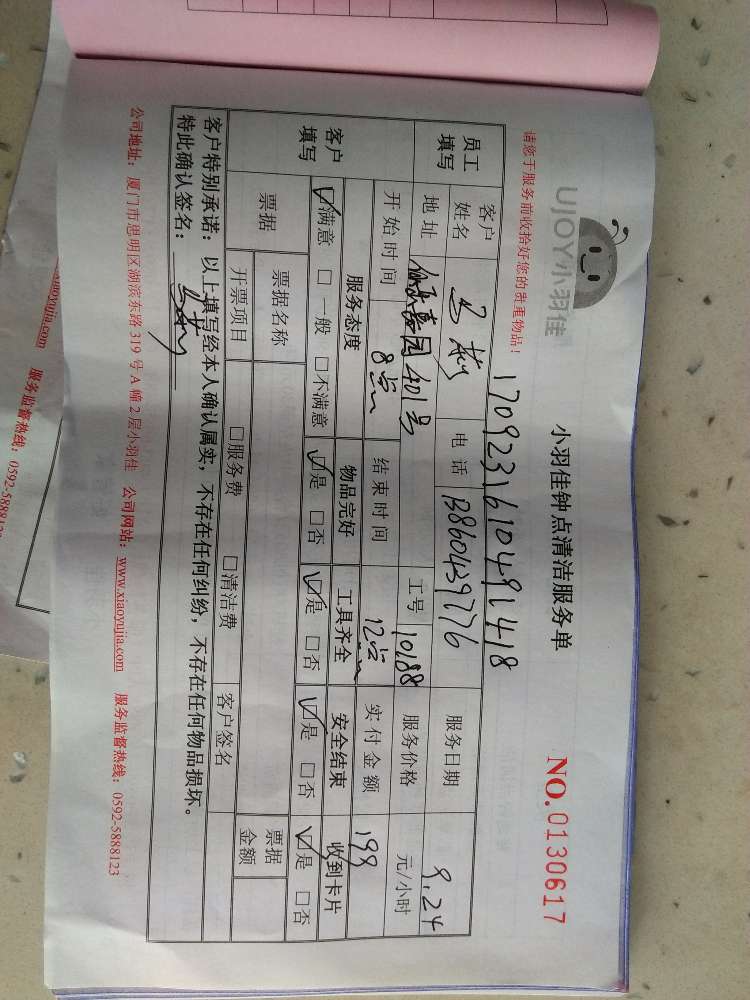 UJOY小羽佳
小羽佳钟点清洁服务单
NO.0130617
请您于服务前收拾好您的贵重物品！
员工填写
客户姓名
电话
服务日期 9.24
地址 401号
工号 10188
服务价格 元/小时
开始时间 8点
结束时间 12点
实付金额 199
客户填写
服务态度 物品完好 工具齐全 安全结束 收到卡片
☑满意 □一般 □不满意 ☑是 □否 ☑是 □否 ☑是 □否 ☑是 □否
票据
票据名称
票据金额
开票项目 □服务费 □清洁费 客户签名
客户特别承诺：以上填写经本人确认属实，不存在任何纠纷，不存在任何物品损坏。
特此确认签名：
公司地址：厦门市思明区湖滨东路319号A幢2层小羽佳 公司网站：www.xiaoyujia.com 服务监督热线：0592-5888123
xiaoyujia.com 服务监督热线：0592-588812